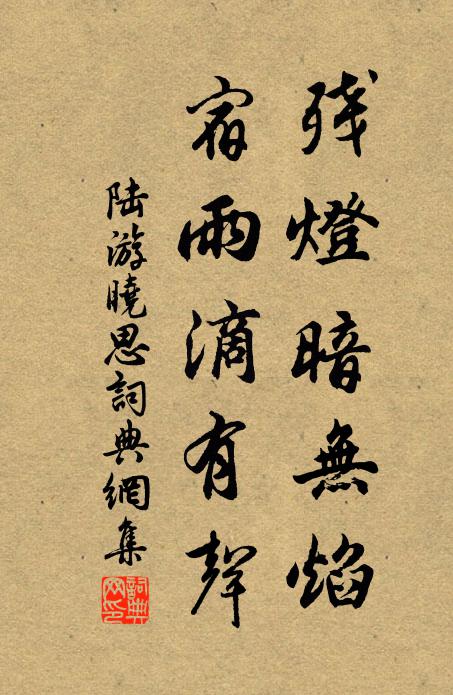 残燈暗無焰
宿雨滴有聲
陆游曉思詞典網集
詞典网印